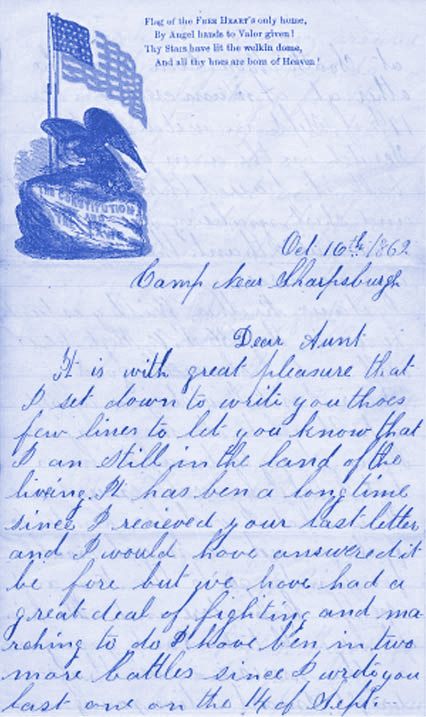 Flag of the FREE HEART's only home,
By Angel hands to Valor given!
Thy Stars have lit the welkin dome,
And all thy hues are born of Heaven!
THE CONSTITUTION
AND
THE
Oct 16th 1862
Camp Near Sharpsburgh
Dear Aunt
It is with great pleasure that
I set down to write you thoes
few lines to let you know that
I an still in the land of the
liveing. It has ben a long time
since I recieved your last letter
and I would have answered it
be fore but we have had a
great deal of fighting and ma-
rching to do I have ben in two
more battles since I wrote you
last one on the 14 of Sept.